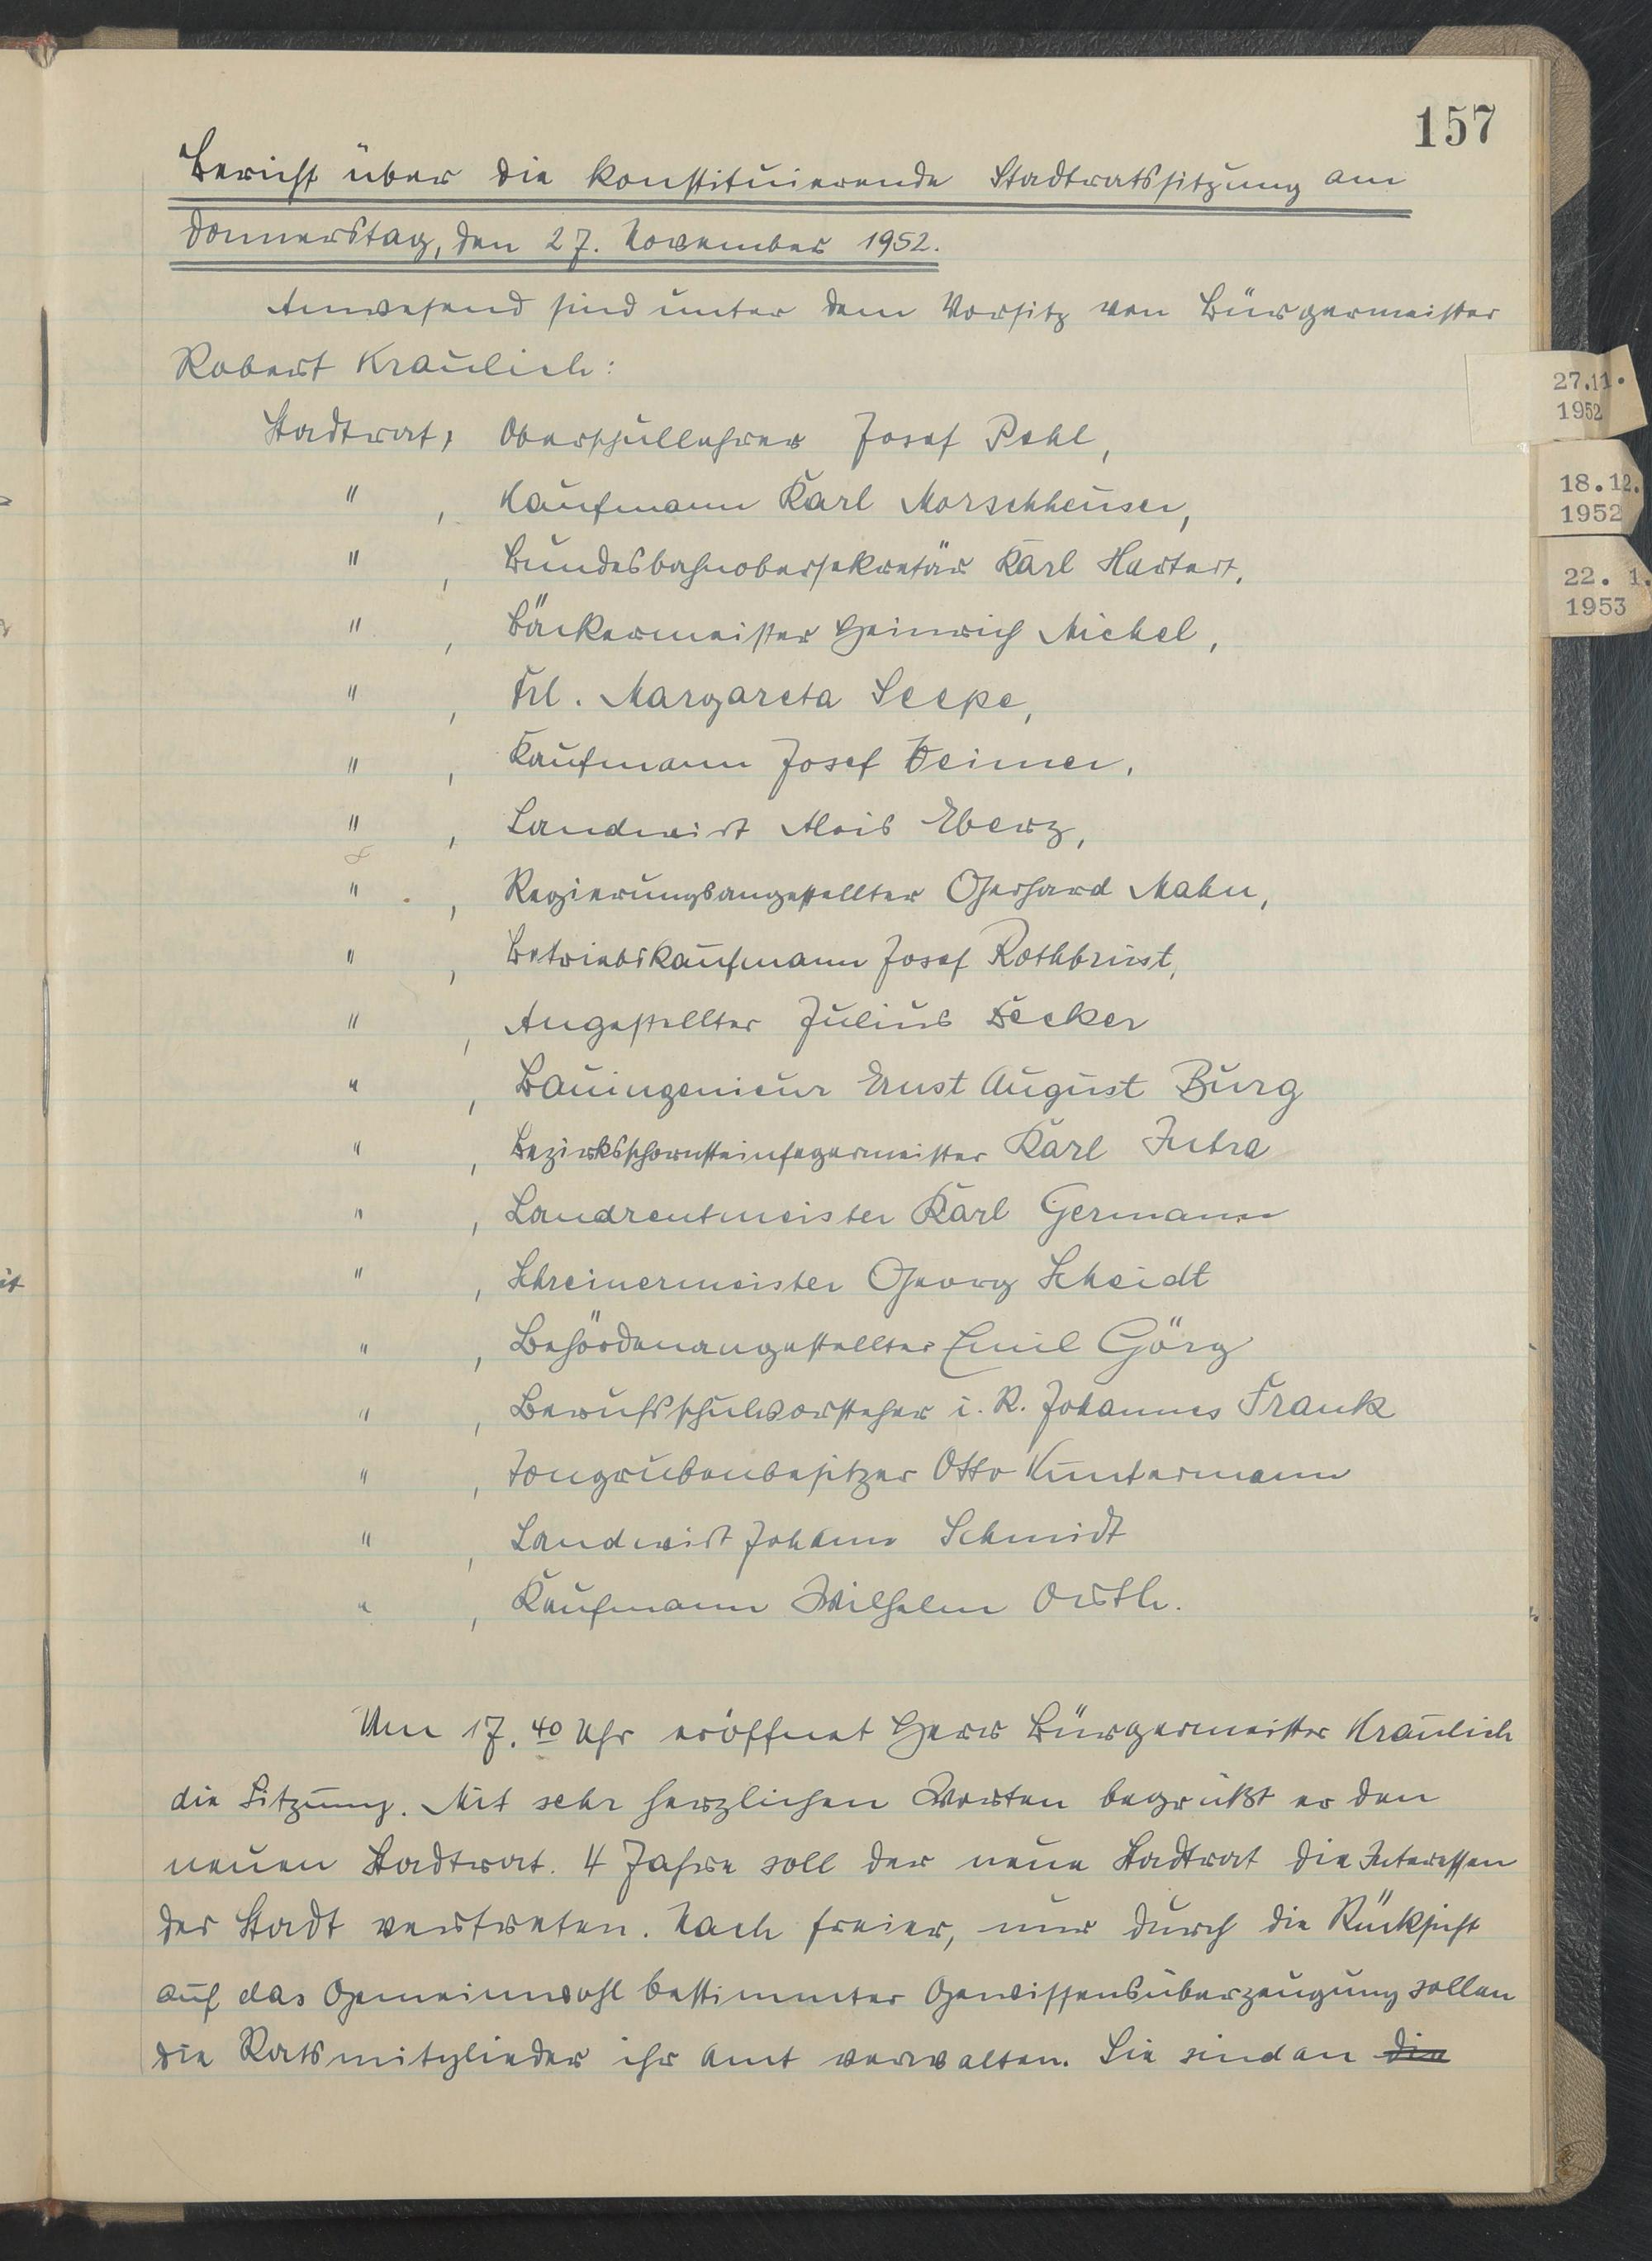 157
Bericht über die konstituierende Stadtratssitzung am
Donnerstag, den 27. November 1952.
Anwesend sind unter dem Vorsitz von Bürgermeister
Robert Kraulich:
27.11.
1952
18.12.
1952
22. 1.
1953
Stadtrat, Oberschullehrer Josef Pehl,
" , Kaufmann Karl Morschheuser,
" , Bundesbahnobersekretär Karl Hartert,
" , Bäckermeister Heinrich Michel,
" , Frl. Margareta Seepe,
" , Kaufmann Josef Weimer,
" , Landwirt Alois Eberz,
" , Regierungsangestellter Gerhard Mahn,
" , Betriebskaufmann Josef Rothbrust,
" , Angestellter Julius Decker
" , Bauingenieur Ernst August Burg
" , Bezirksschornsteinfegermeister Karl Intra
" , Landrentmeister Karl Germann
" , Schreinermeister Georg Scheidt
" , Behördenangestellter Emil Görg
" , Berufsschulvorsteher i. R. Johannes Frank
" , Tongrubenbesitzer Otto Kuntermann
" , Landwirt Johann Schmidt
" , Kaufmann Wilhelm Orth.
Um 17.40 Uhr eröffnet Herr Bürgermeister Kraulich
die Sitzung. Mit sehr herzlichen Worten begrüßt er den
neuen Stadtrat. 4 Jahre soll der neue Stadtrat die Interessen
der Stadt vertreten. Nach freier, nur durch die Rücksicht
auf das Gemeinwohl bestimmter Gewissensüberzeugung sollen
die Ratsmitglieder ihr Amt verwalten. Sie sind an die